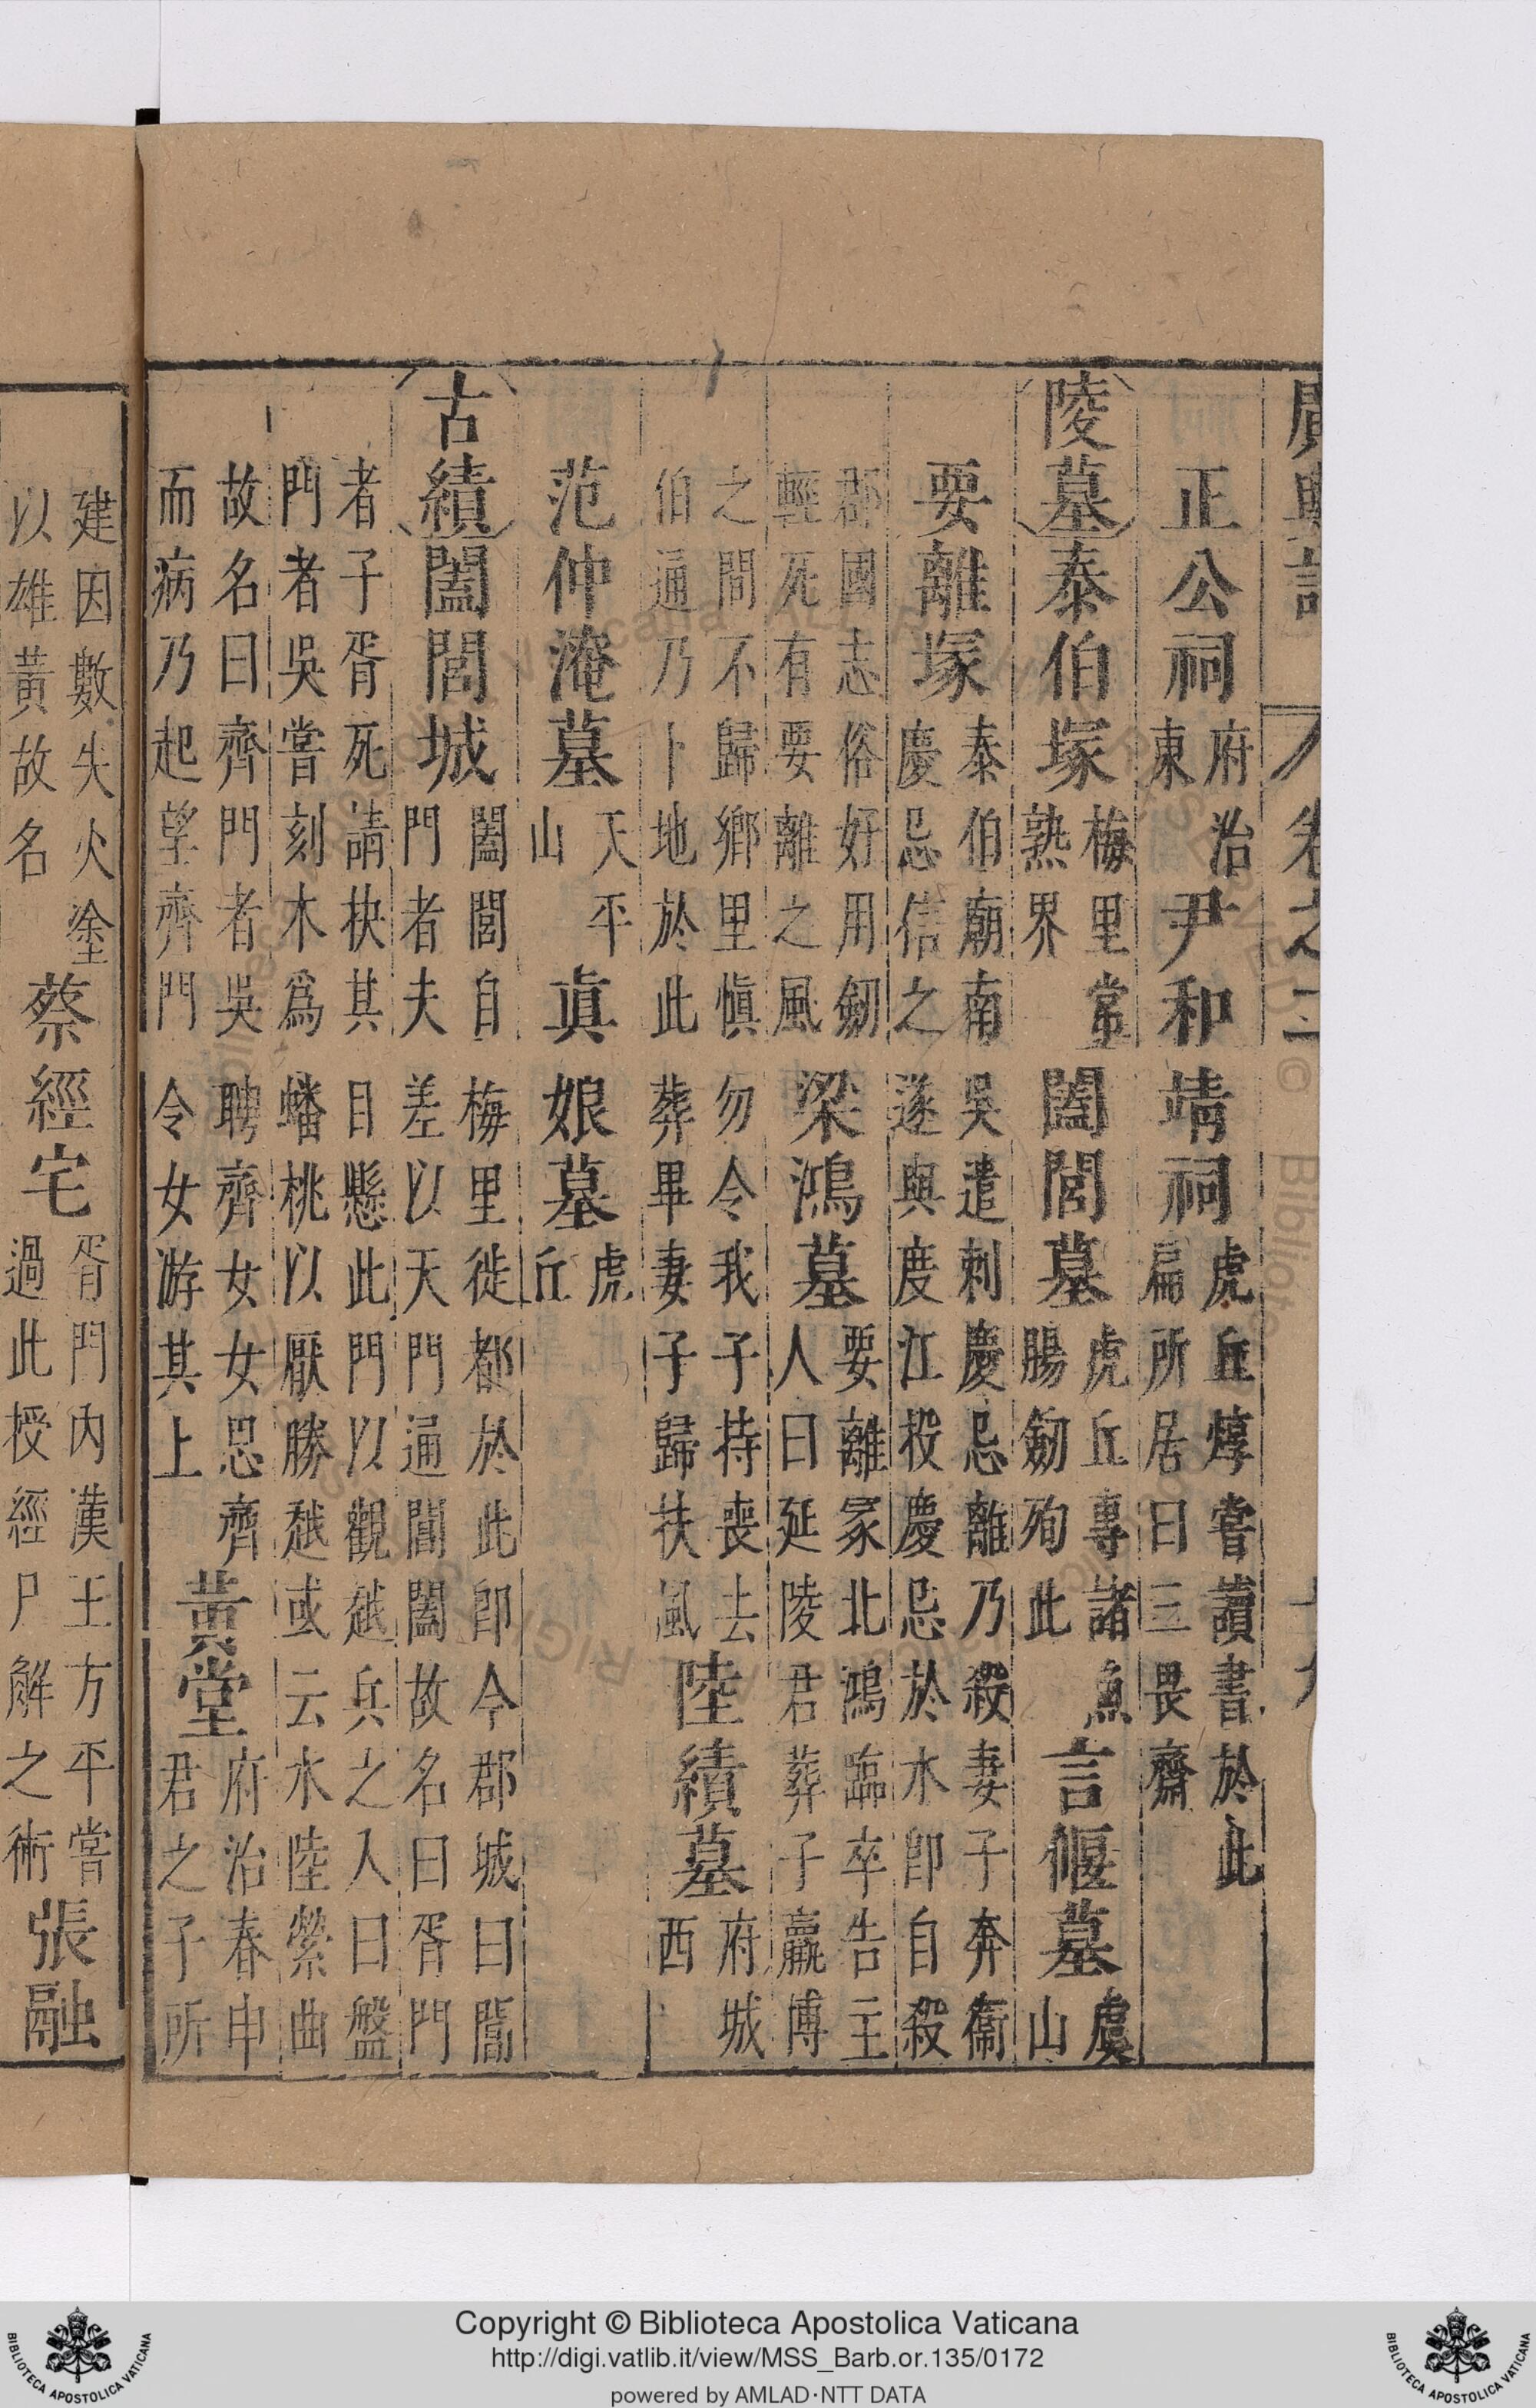 廣輿記 卷之二
正公祠 府治東 尹和靖祠 虎丘焞嘗讀書於此扁所居曰三畏齋
陵墓 泰伯塚 梅里常熟界 闔閭墓 虎丘專諸魚腸劒殉此 言偃墓 虞山
要離塚 泰伯廟南吳遣刺慶忌離乃殺妻子奔衞慶忌信之遂與度江投慶忌於水即自殺
郡國志俗好用劒輕死有要離之風 梁鴻墓 要離冢北鴻臨卒告主人曰延陵君葬子嬴博
之間不歸鄉里愼勿令我子持喪去伯通乃卜地於此葬畢妻子歸扶風 陸績墓 府城西
范仲淹墓 天平山 眞娘墓 虎丘
古蹟 闔閭城 闔閭自梅里徙都於此即今郡城曰閶門者夫差以天門通閶闔故名曰胥門
者子胥死請抉其目懸此門以觀越兵之人曰盤門者吳嘗刻木爲蟠桃以厭勝越或云水陸縈曲
故名曰齊門者吳聘齊女女思齊而病乃起望齊門令女游其上 黃堂 府治春申君之子所
建因數失火塗以雄黃故名 蔡經宅 胥門內漢王方平嘗過此授經尸解之術 張融
Copyright © Biblioteca Apostolica Vaticana
http://digi.vatlib.it/view/MSS_Barb.or.135/0172
powered by AMLAD·NTT DATA
BIBLIOTECA APOSTOLICA VATICANA
BIBLIOTECA APOSTOLICA VATICANA